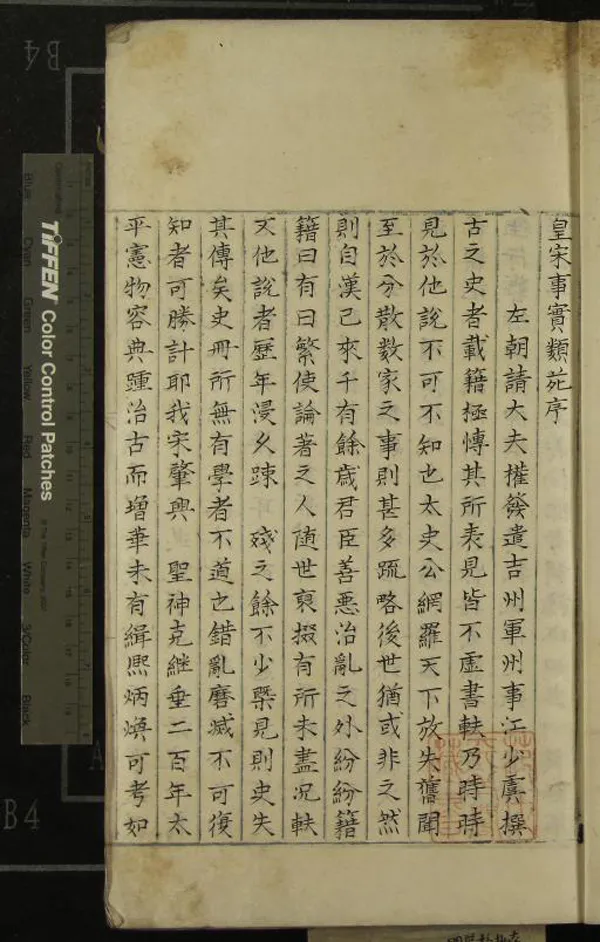 皇宋事實類苑序
左朝請大夫權發遣吉州軍州事江少虞撰
古之史者載籍極愽其所表見皆不虛書軼乃時時
見於他說不可不知也太史公網羅天下放失舊聞
至於分散数家之事則甚多疏略後世猶或非之然
則自漢已來千有餘歳君臣善悪治亂之外紛紛籍
籍曰有曰繁使論著之人随世裒掇有所未盡况軼
文他說者歷年浸久踈 殘之餘不少槩見則史失
其傳矣史冊所無有學者不道也錯亂磨滅不可復
知者可勝計耶我宋肇興 聖神克継垂二百年太
平憲物容典踵治古而增華未有緝熈炳煥可考如
TIFFEN Color Control Patches
Blue Cyan Green Yellow Red Magenta White 3/Color Black
B4
B4
A